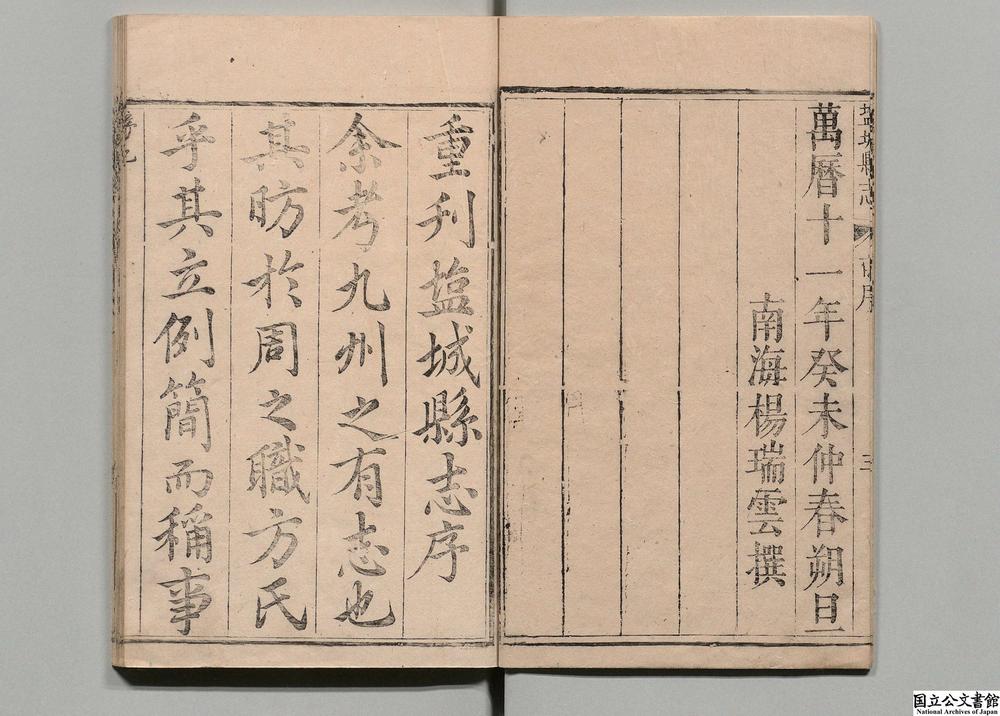 塩城縣志
萬暦十一年癸未仲春朔旦
南海楊瑞雲撰
重刋塩城縣志序
余考九州之有志也
其昉於周之職方氏
乎其立例簡而稱事
国立公文書館
National Archives of Japan